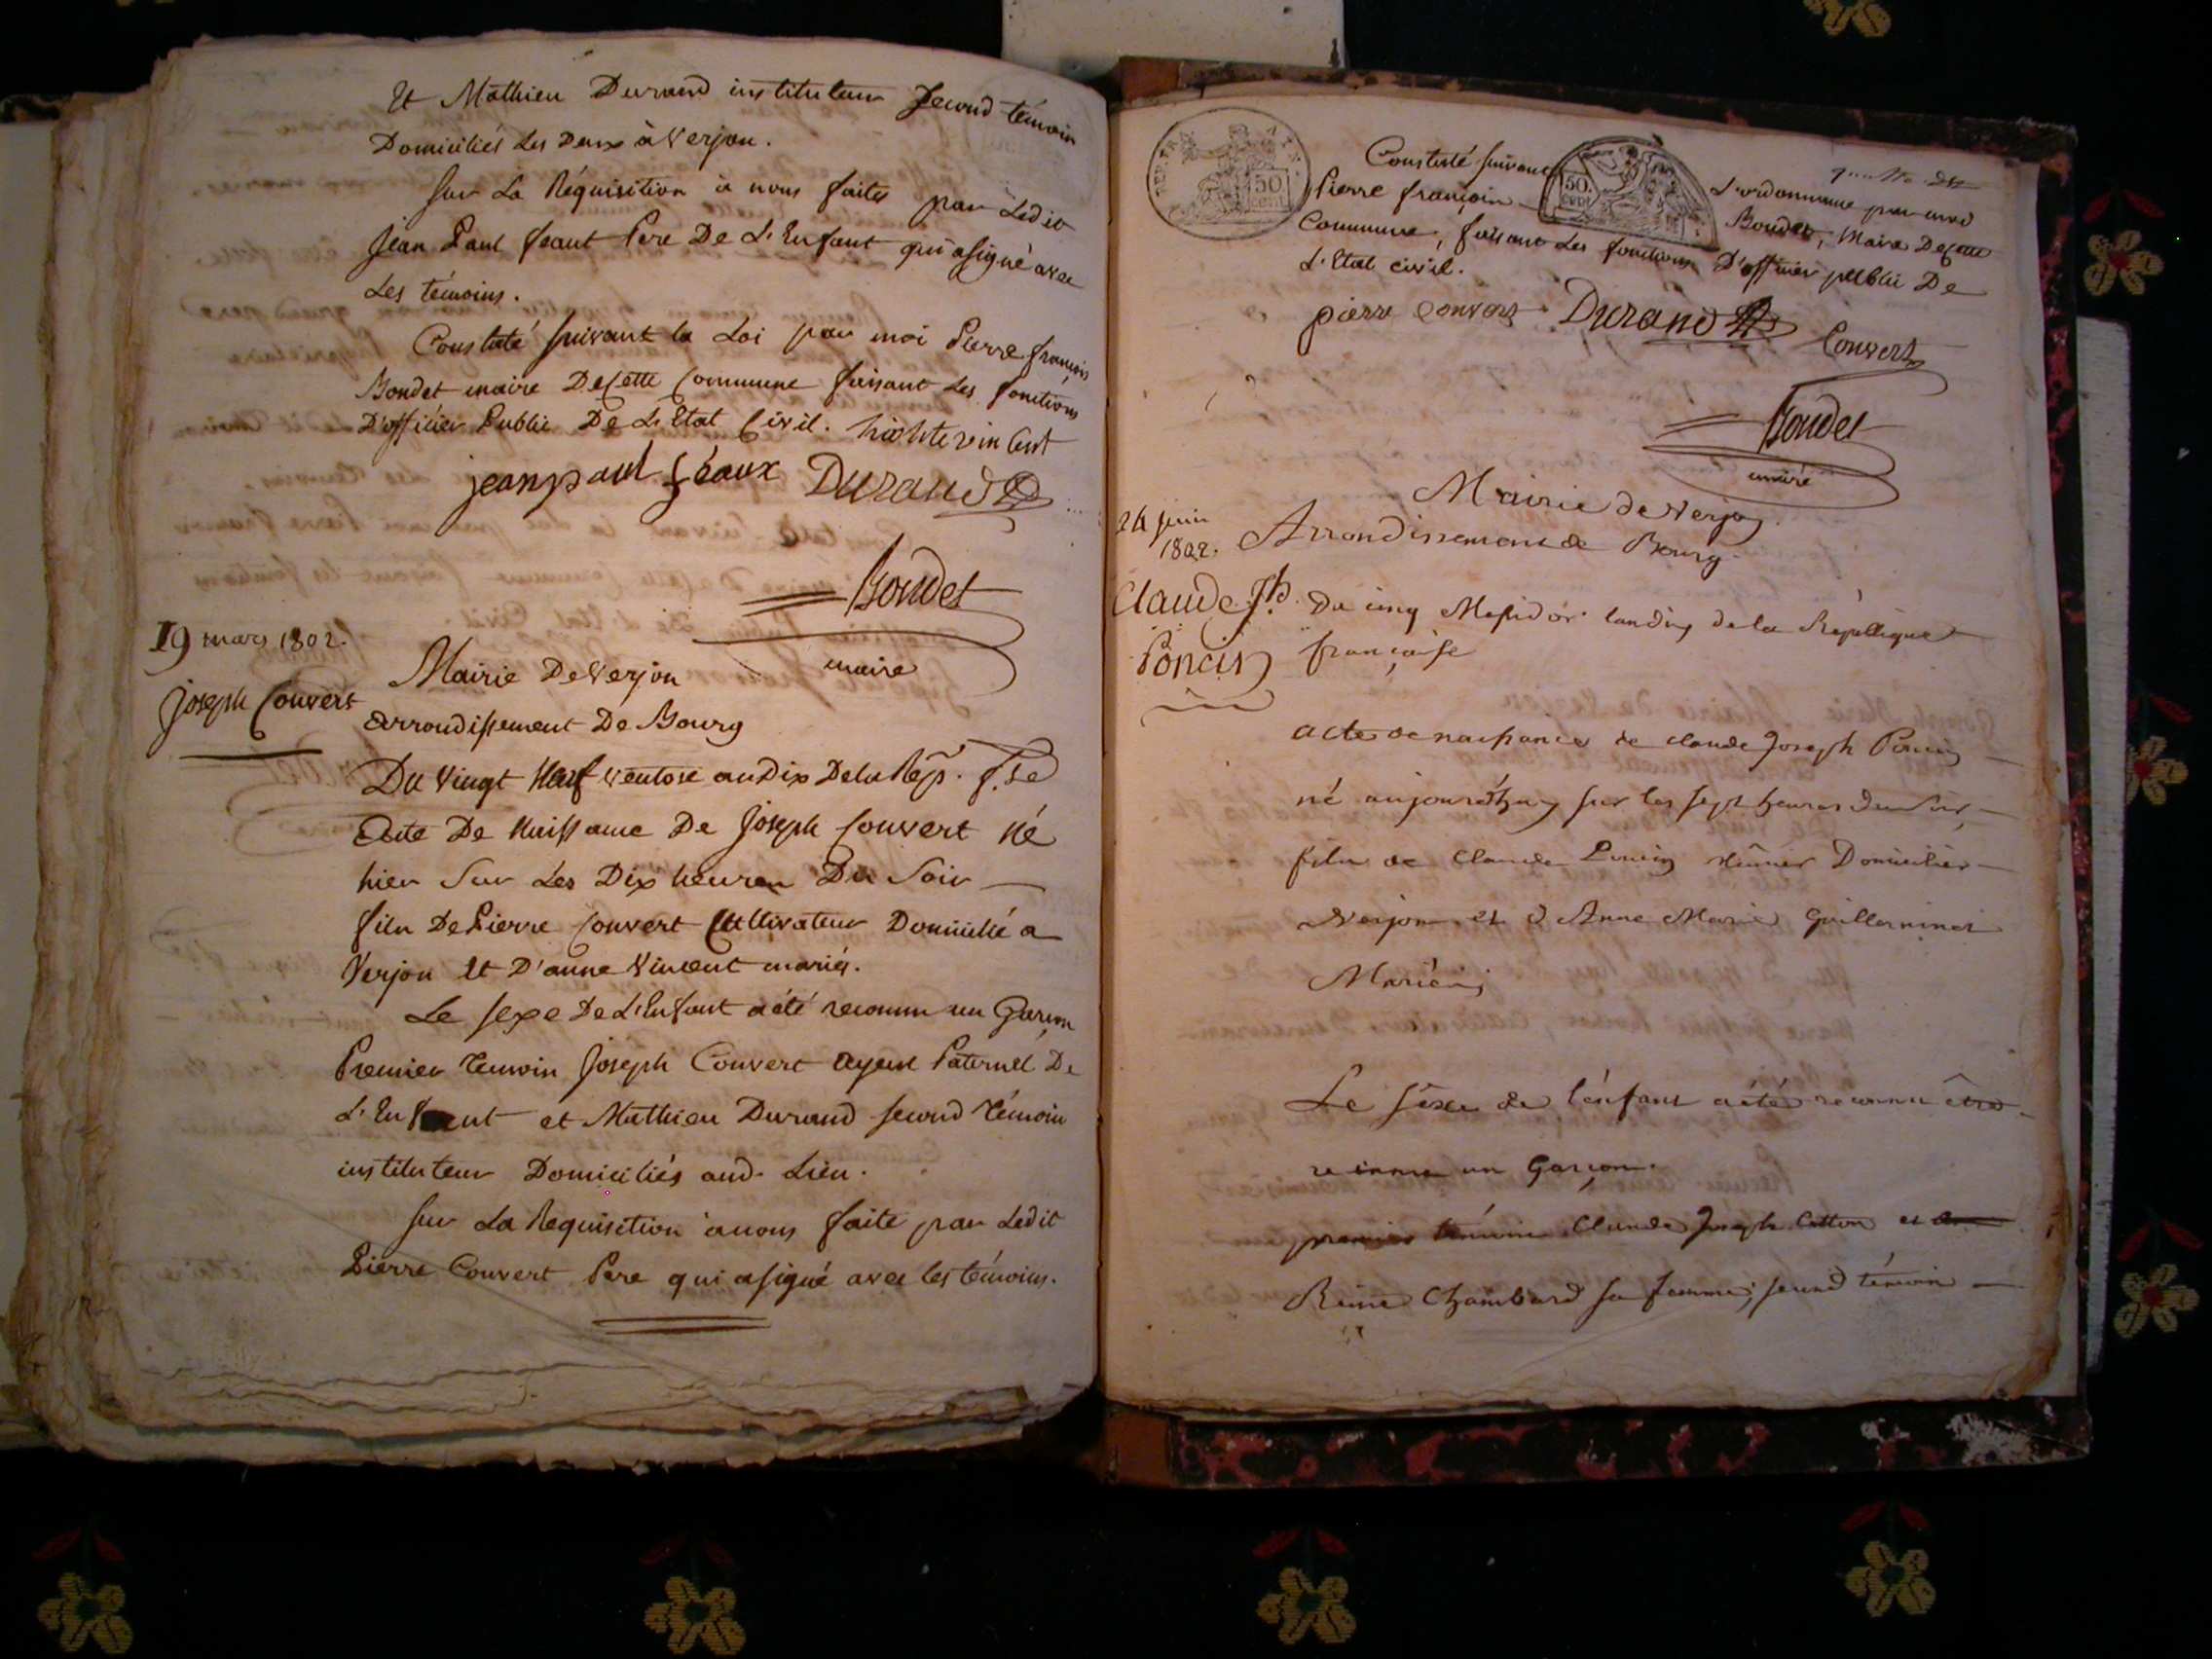 Et Mathieu Durand instituteur second témoin
Domiciliés Les Deux à Verjon.
Sur La Réquisition à nous faite par Ledit
Jean Paul feaut Pere De L'Enfant qui a signé avec
Les témoins.
Constaté suivant la Loi par moi Pierre françois
Bondet maire De Cette Commune faisant Les fonctions
D'officier Public De L'Etat Civil.
jean paul féaux Durand
Bondet
maire
19 mars 1802.
Joseph Convert
Mairie De Verjon
arrondissement De Bourg
Du Vingt Neuf ventose an Dix De la Rép. f.se
Acte De Naissance De Joseph Convert Né
hier Sur Les Dix heures Du Soir
fils De Pierre Convert Cultivateur Domicilié a
Verjon Et D'anne Vincent mariés.
Le sexe De L'Enfant a été reconnu un Garçon
Premier temoin Joseph Convert ayeul Paternel De
L'Enfant et Mathieu Durand second témoin
instituteur Domiciliés aud. Lieu.
Sur La Requisition à nous faite par Ledit
Pierre Convert Pere qui a signé avec les témoins.
50 cent
50. cent
Constaté suivant L'ordonnance par moi
Pierre françois Bondet, Maire De cette
Commune, faisant Les fonctions D'officier public De
L'Etat civil.
pierre convert Durand Convert
Bondet
maire
24 juin
1802.
Claude Jh.
Poncin
Mairie de Verjon.
Arrondissement de Bourg
Du cinq Messidor lan dix de la République
française
acte de naissance de Claude Joseph Poncin
né aujourdhuy sur les sept heures du soir,
fils de Claude Poncin Domicilier
a Verjon et d Anne Marie Guillerminet
Mariés
Le sexe de l'enfant a été reconnu être
reconnu un Garçon.
premier témoin Claude Joseph Cotton et
Reine Chambard sa femme, second témoin